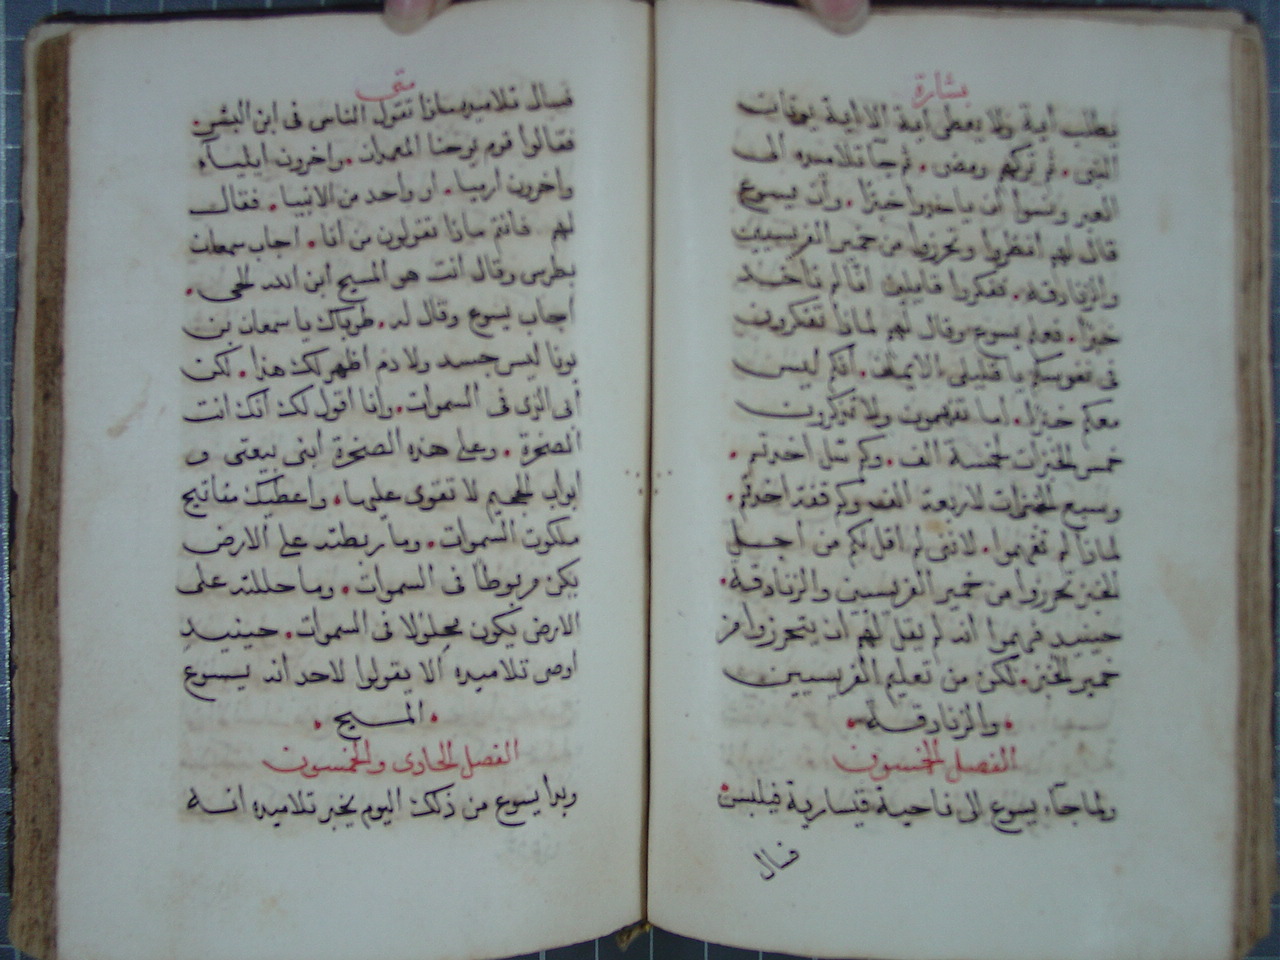 بشارة
يطلب اية ولا يعطى اية الا اية يونان
النبى . ثم تركهم ومضى . ثم جا تلاميذه الى
العبر ونسوا ان ياخدوا خبزًا . وان يسوع
قال لهم انظروا وتحرزوا من خمير الفريسيين
والزنادقه . ففكروا قايلين اننا لم ناخد
خبزًا . فعلم يسوع وقال لهم لماذا تفكرون
فى نفوسكم يا قليلى الايمان . انكم ليس
معكم خبزًا . اما تفهمون ولا تذكرون
خمس الخبزات لخمسة الف . وكم سل اخدتم .
وسبع الخبزات لاربعة الف وكم قفة اخدتم .
لماذا لم تفهموا . لاننى لم اقل لكم من اجل
الخبز تحرزوا من خمير الفريسيين والزنادقة .
حينيد فهموا انه لم يقل لهم ان يتحرزوا من
خمير الخبز . لكن من تعليم الفريسيين
. والزنادقة .
الفصل الخمسون
ولما جاء يسوع الى ناحية قيسارية فيلبس .
فسال
متى
فسال تلاميذه ماذا تقول الناس فى ابن البشر .
فقالوا قوم يوحنا المعمدان . واخرون ايلياء
واخرون ارميا . او واحد من الانبيا . فقال
لهم فانتم ماذا تقولون من انا . اجاب سمعان
بطرس وقال انت هو المسيح ابن الله الحى .
اجاب يسوع وقال له . طوباك يا سمعان بن
يونا ليس جسد ولا دم اظهر لك هذا . لكن
ابى الذى فى السموات . وانا اقول لك انك انت
الصخرة . وعلى هذه الصخرة ابنى بيعتى و
ابواب الجحيم لا تقوى عليها . واعطيك مفاتيح
ملكوت السموات . وما ربطته على الارض
يكن مربوطا فى السموات . وما حللته على
الارض يكون محلولا فى السموات . حينيد
اوصى تلاميذه الا يقولوا لاحد انه يسوع
. المسيح .
الفصل الحادى والخمسون
وبدا يسوع من ذلك اليوم يخبر تلاميذه انه